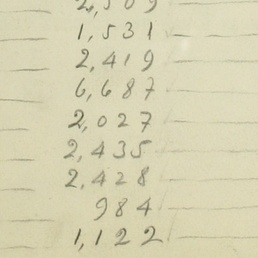 2,509
1,531
2,419
6,687
2,027
2,435
2,428
984
1,122